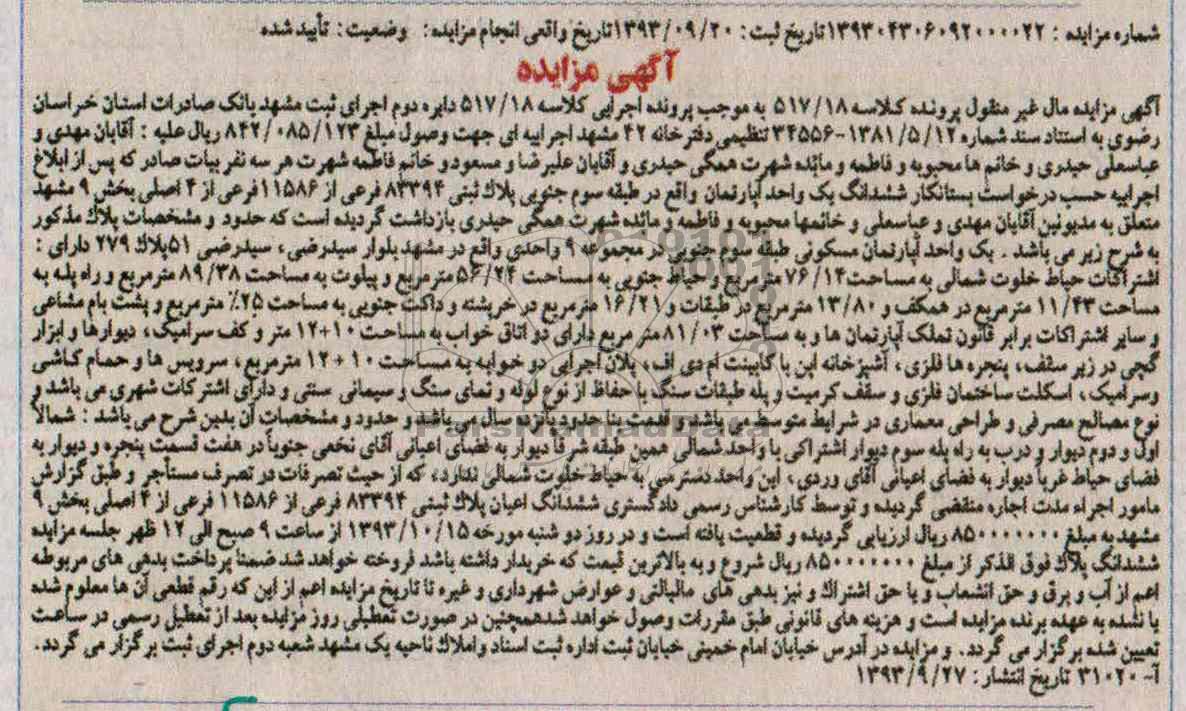 شماره مزایده : ۱۳۹۳۰۴۳۰۶۰۹۲۰۰۰۰۲۲ تاریخ ثبت : ۱۳۹۳/۰۹/۲۰ تاریخ واقعی انجام مزایده: وضعیت : تأیید شده
آگهی مزایده
آگهی مزایده مال غیر منقول پرونده کلاسه ۵۱۷/۱۸ به موجب پرونده اجرایی کلاسه ۵۱۷/۱۸ دایره دوم اجرای ثبت مشهد بانک صادرات استان خراسان
رضوی به استناد سند شماره ۱۳۸۱/۵/۱۲-۳۴۵۵۶ تنظیمی دفترخانه ۴۲ مشهد اجراییه ای جهت وصول مبلغ ۸۴۲/۰۸۵/۱۲۳ ریال علیه : آقایان مهدی و
عباسعلی حیدری و خانم ها محبوبه و فاطمه و مائده شهرت همگی حیدری و آقایان علیرضا و مسعود و خانم فاطمه شهرت هر سه نفر بیات صادر که پس از ابلاغ
اجراییه حسب درخواست بستانکار ششدانگ یک واحد آپارتمان واقع در طبقه سوم جنوبی پلاک ثبتی ۸۳۳۹۴ فرعی از ۱۱۵۸۶ فرعی از ۴ اصلی بخش ۹ مشهد
متعلق به مدیونین آقایان مهدی و عباسعلی و خانمها محبوبه و فاطمه و مائده شهرت همگی حیدری بازداشت گردیده است که حدود و مشخصات پلاک مذکور
به شرح زیر می باشد . یک واحد آپارتمان مسکونی طبقه سوم جنوبی در مجموعه ۹ واحدی واقع در مشهد بلوار سیدرضی، سیدرضی ۵۱ پلاک ۲۷۹ دارای :
اشتراکات حیاط خلوت شمالی به مساحت ۷۶/۱۴ مترمربع و حیاط جنوبی به مساحت ۵۶/۲۴ مترمربع و پیلوت به مساحت ۸۹/۳۸ مترمربع و راه پله به
مساحت ۱۱/۴۳ مترمربع در همکف و ۱۳/۸۰ مترمربع در طبقات و ۱۶/۲۱ مترمربع در خرپشته و داکت جنوبی به مساحت ۲۵٪ مترمربع و پشت بام مشاعی
و سایر اشتراکات برابر قانون تملک آپارتمان ها و به مساحت ۸۱/۰۳ متر مربع دارای دو اتاق خواب به مساحت ۱۰+۱۲ متر و کف سرامیک، دیوارها و ابزار
گچی در زیر سقف، پنجره ها فلزی، آشپزخانه اپن با کابینت ام دی اف، پلان اجرایی دو خوابه به مساحت ۱۰+۱۲ مترمربع، سرویس ها و حمام کاشی
وسرامیک، اسکلت ساختمان فلزی و سقف کرمیت و پله طبقات سنگ با حفاظ از نوع لوله و نمای سنگ و سیمانی سنتی و دارای اشتراکات شهری می باشد و
نوع مصالح مصرفی و طراحی معماری در شرایط متوسط می باشد و قدمت بنا حدود پانزده سال می باشد و حدود و مشخصات آن بدین شرح می باشد : شمالاً
اول و دوم دیوار و درب به راه پله سوم دیوار اشتراکی با واحد شمالی همین طبقه شرقاً دیوار به فضای اعیانی آقای نخعی جنوباً در هفت قسمت پنجره و دیوار به
فضای حیاط غرباً دیوار به فضای اعیانی آقای وردی، این واحد دسترسی به حیاط خلوت شمالی ندارد، که از حیث تصرفات در تصرف مستأجر و طبق گزارش
مامور اجراء مدت اجاره منقضی گردیده و توسط کارشناس رسمی دادگستری ششدانگ اعیان پلاک ثبتی ۸۳۳۹۴ فرعی از ۱۱۵۸۶ فرعی از ۴ اصلی بخش ۹
مشهد به مبلغ ۸۵۰۰۰۰۰۰۰ ریال ارزیابی گردیده و قطعیت یافته است و در روز دو شنبه مورخه ۱۳۹۳/۱۰/۱۵ از ساعت ۹ صبح الی ۱۲ ظهر جلسه مزایده
ششدانگ پلاک فوق الذکر از مبلغ ۸۵۰۰۰۰۰۰۰ ریال شروع و به بالاترین قیمت که خریدار داشته باشد فروخته خواهد شد ضمنا پرداخت بدهی های مربوطه
اعم از آب و برق و حق انشعاب و یا حق اشتراک و نیز بدهی های مالیاتی و عوارض شهرداری و غیره تا تاریخ مزایده اعم از این که رقم قطعی آن ها معلوم شده
یا نشده به عهده برنده مزایده است و هزینه های قانونی طبق مقررات وصول خواهد شدهمچنین در صورت تعطیلی روز مزایده بعد از تعطیل رسمی در ساعت
تعیین شده برگزار می گردد. و مزایده در آدرس خیابان امام خمینی خیابان ثبت اداره ثبت اسناد واملاک ناحیه یک مشهد شعبه دوم اجرای ثبت برگزار می گردد.
آ- ۳۱۰۲۰ تاریخ انتشار : ۱۳۹۳/۹/۲۷